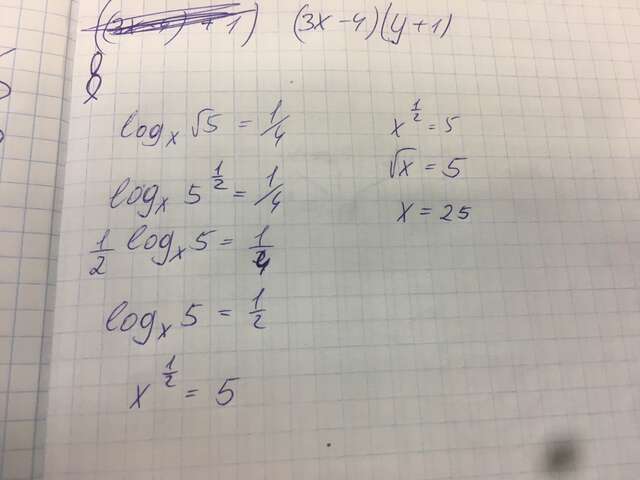 (3x-4)(y+1)
8
log_x √5 = 1/4
log_x 5^{1/2} = 1/4
1/2 log_x 5 = 1/4
log_x 5 = 1/2
x^{1/2} = 5
x^{1/2} = 5
√x = 5
x = 25